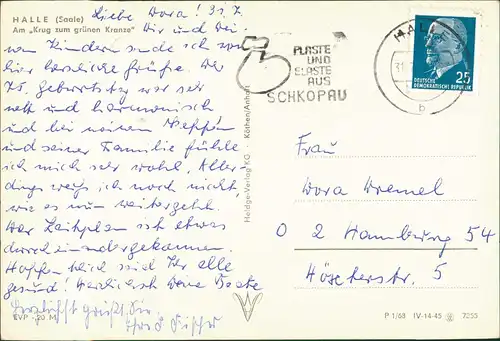 HALLE (Saale)
Am „Krug zum grünen Kranze"
Liebe Dora! 31.7.
Dir und Dei-
nen Kindern sende ich von
hier herzliche Grüße. Der
75. Geburtstag war sehr
nett und harmonisch
und bei meinem Neffen
und seiner Familie fühle
ich mich sehr wohl. Aller-
dings weiß ich noch nicht,
wie es nun weitergeht.
Der Zeitplan ist etwas
durcheinandergekommen.
Hoffentlich seid Ihr alle
gesund! Herzlichst Deine Beate
Herzlichst grüßt Sie
Fischer
EVP -,20 M
Heldge-Verlag KG · Köthen/Anhalt
PLASTE
UND
ELASTE
AUS
SCHKOPAU
HALLE
31.
b
DEUTSCHE
DEMOKRATISCHE REPUBLIK
25
Frau
Dora Dremel
02 Hamburg 54
Höxterstr. 5
P 1/68 IV-14-45 7255